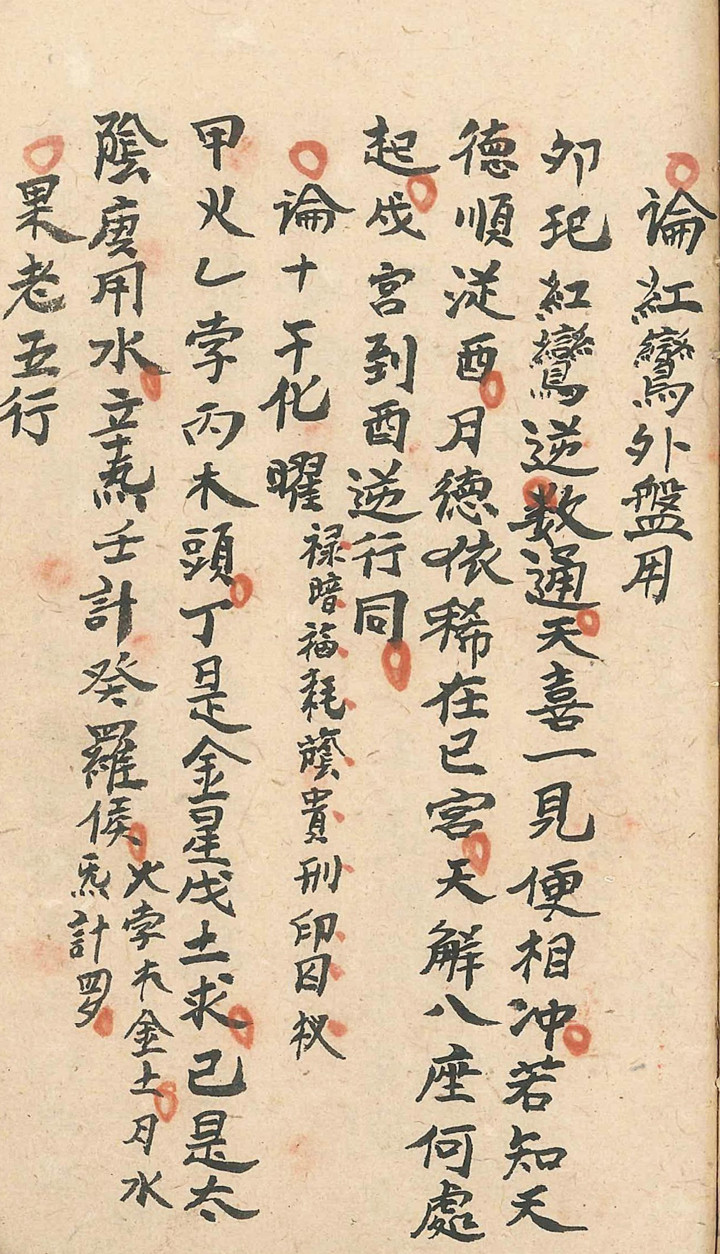 論紅鸞外盤用
夘玘紅鸞逆数通天喜一見便相冲若知天
德順従酉月德依稀在巳宮天解八座何處
起戍宮到酉逆行同
論十干化曜 禄暗福耗廕貴刑印囚权
甲火乙孛丙木頭丁是金星戊土求己是太
陰庚用水辛炁壬計癸羅侯 火孛木金土月水
炁計罗
果老五行